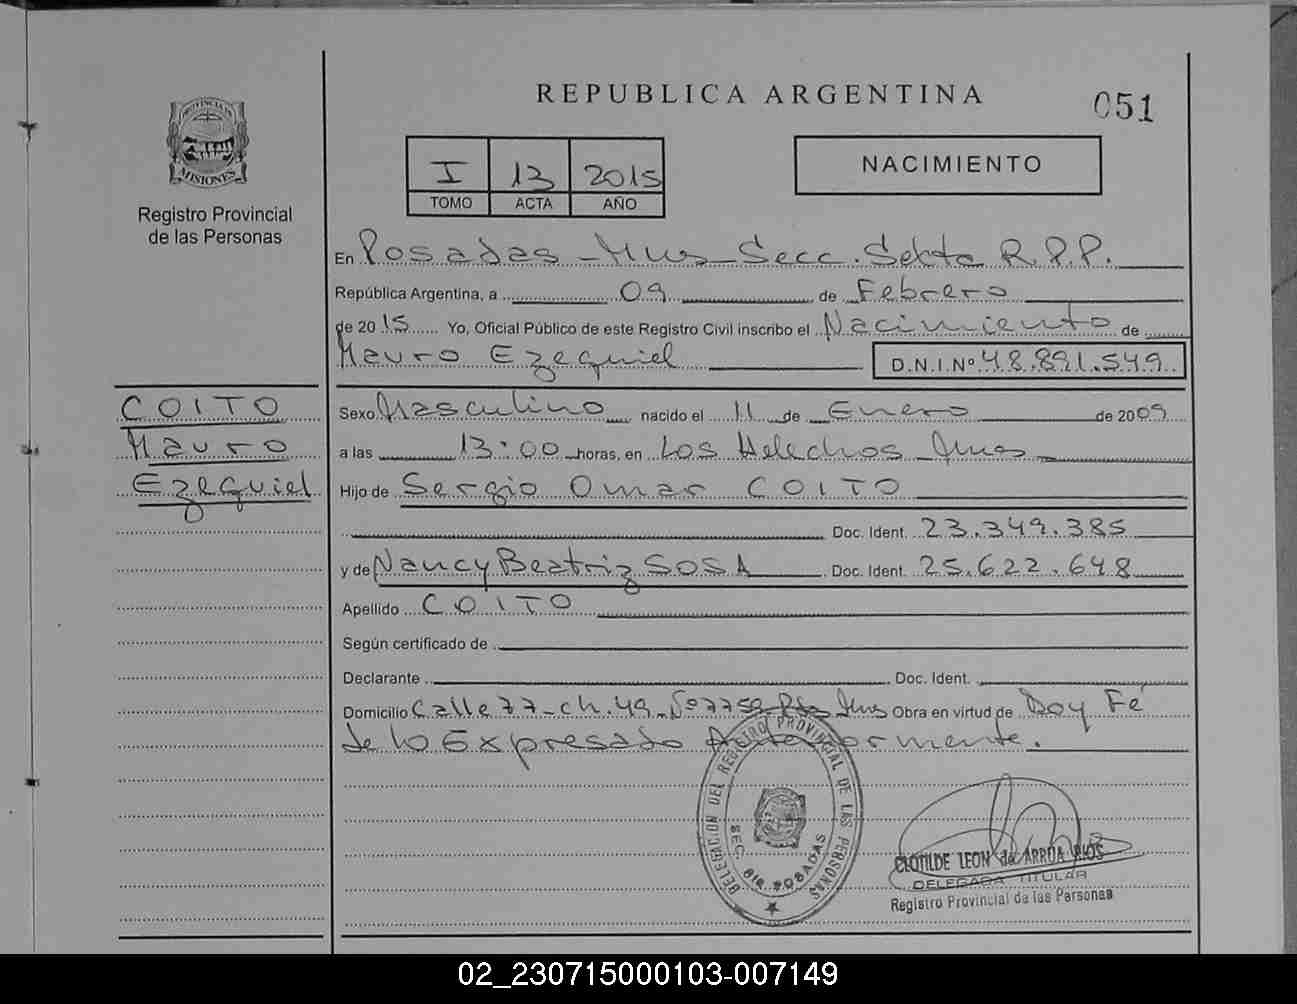 REPUBLICA ARGENTINA
051
PROVINCIA DE
MISIONES
Registro Provincial
de las Personas
I 13 2015
TOMO ACTA AÑO
NACIMIENTO
En Posadas - Mnes - Secc. Sexta R.P.P.
República Argentina, a 09 de Febrero
de 2015 Yo, Oficial Público de este Registro Civil inscribo el Nacimiento de
Mauro Ezequiel D.N.I.Nº 48.891.549
COITO
Mauro
Ezequiel
Sexo Masculino nacido el 11 de Enero de 2009
a las 13:00 horas, en Los Helechos - Mnes
Hijo de Sergio Omar COITO
Doc. Ident. 23.349.385
y de Nancy Beatriz SOSA Doc. Ident. 25.622.648
Apellido COITO
Según certificado de
Declarante Doc. Ident.
Domicilio Calle 77 - ch. 49 - Nº 7759 Pdas Mnes Obra en virtud de Doy Fé
de lo Expresado Anteriormente.
DELEGACION DEL REGISTRO PROVINCIAL DE LAS PERSONAS
SEC. 6ta POSADAS
CLOTILDE LEON de ARRUA RIOS
DELEGADA TITULAR
Registro Provincial de las Personas
02_230715000103-007149